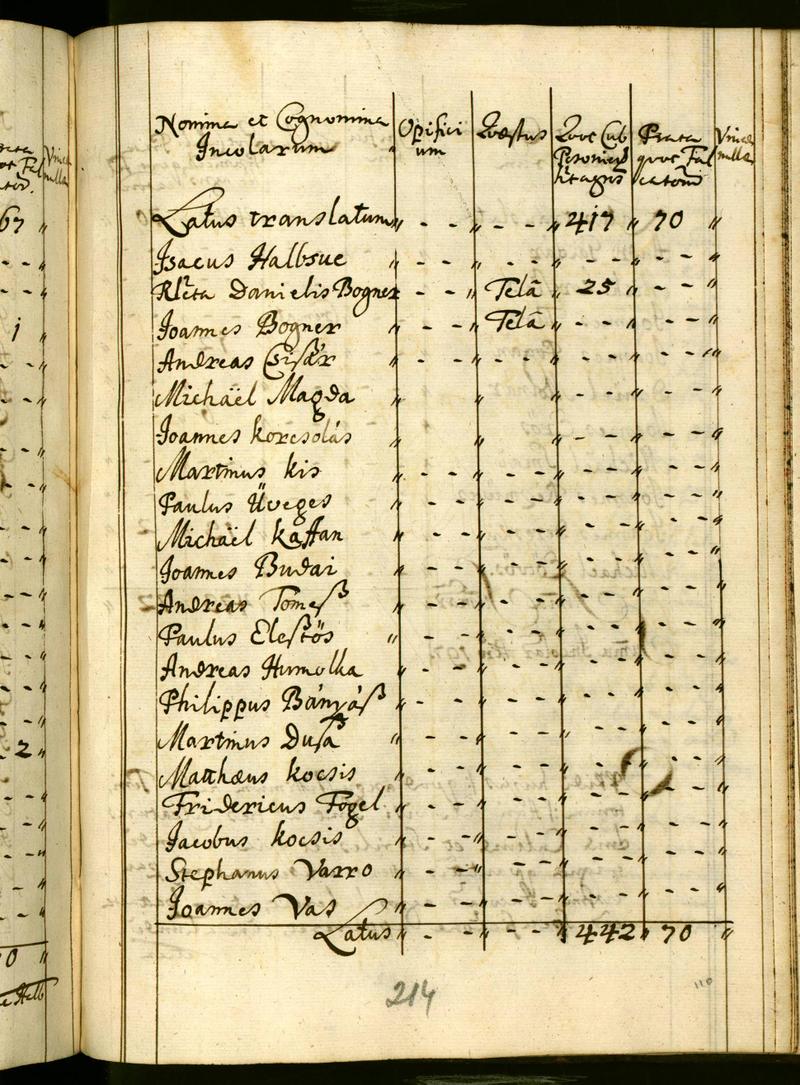 Nomina et Cognomina Opifici Quæstus Quot Cub Prata Vinea
Incolarum um Posonien quot Fal nulla
sit agros catorum
Latus translatum " - - " - - - " 417 " 70 "
Isacus Halbsue " - - " - - - " - - - " - - - "
Rlcta Danielis Bogner - - " Telã " 25 " - - - "
Joannes Bogner " - - " Telã " - - - " - - - "
Andreas Csiszár " - - " - - - " - - - " - - - "
Michaël Magda " " " " - - - "
Joannes korcsolás " " " - - - " - - - "
Martinus kis " - - - " - - - " - - - " - - - "
Paulus Üveges " - - - " - - - " - - - " - - - "
Michaël kaftan " - - - " - - - " - - - " - - - "
Joannes Budai " - - - " - - - " - - - " - - - "
Andreas Tomeß " - - - " - - - " - - - " - - - "
Paulus Eleßtös " - - - " - - - " - - - " - - - "
Andreas Humolka " - - - " - - - " - - - " - - - "
Philippus Bányáß " - - - " - - - " - - - " - - - "
Martinus Dußa " - - - " - - - " - - - " - - - "
Matthæus kocsis " - - - " - - - " - - - " - - - "
Fridericus Fogel " - - - " - - - " - - - " - - - "
Jacobus kocsis " - - - " - - - " - - - " - - - "
Stephanus Varro " - - - " - - - " - - - " - - - "
Joannes Vas " - - - " - - - " - - - " - - - "
Latus " - - " - - - " 442 " 70 "
214
110